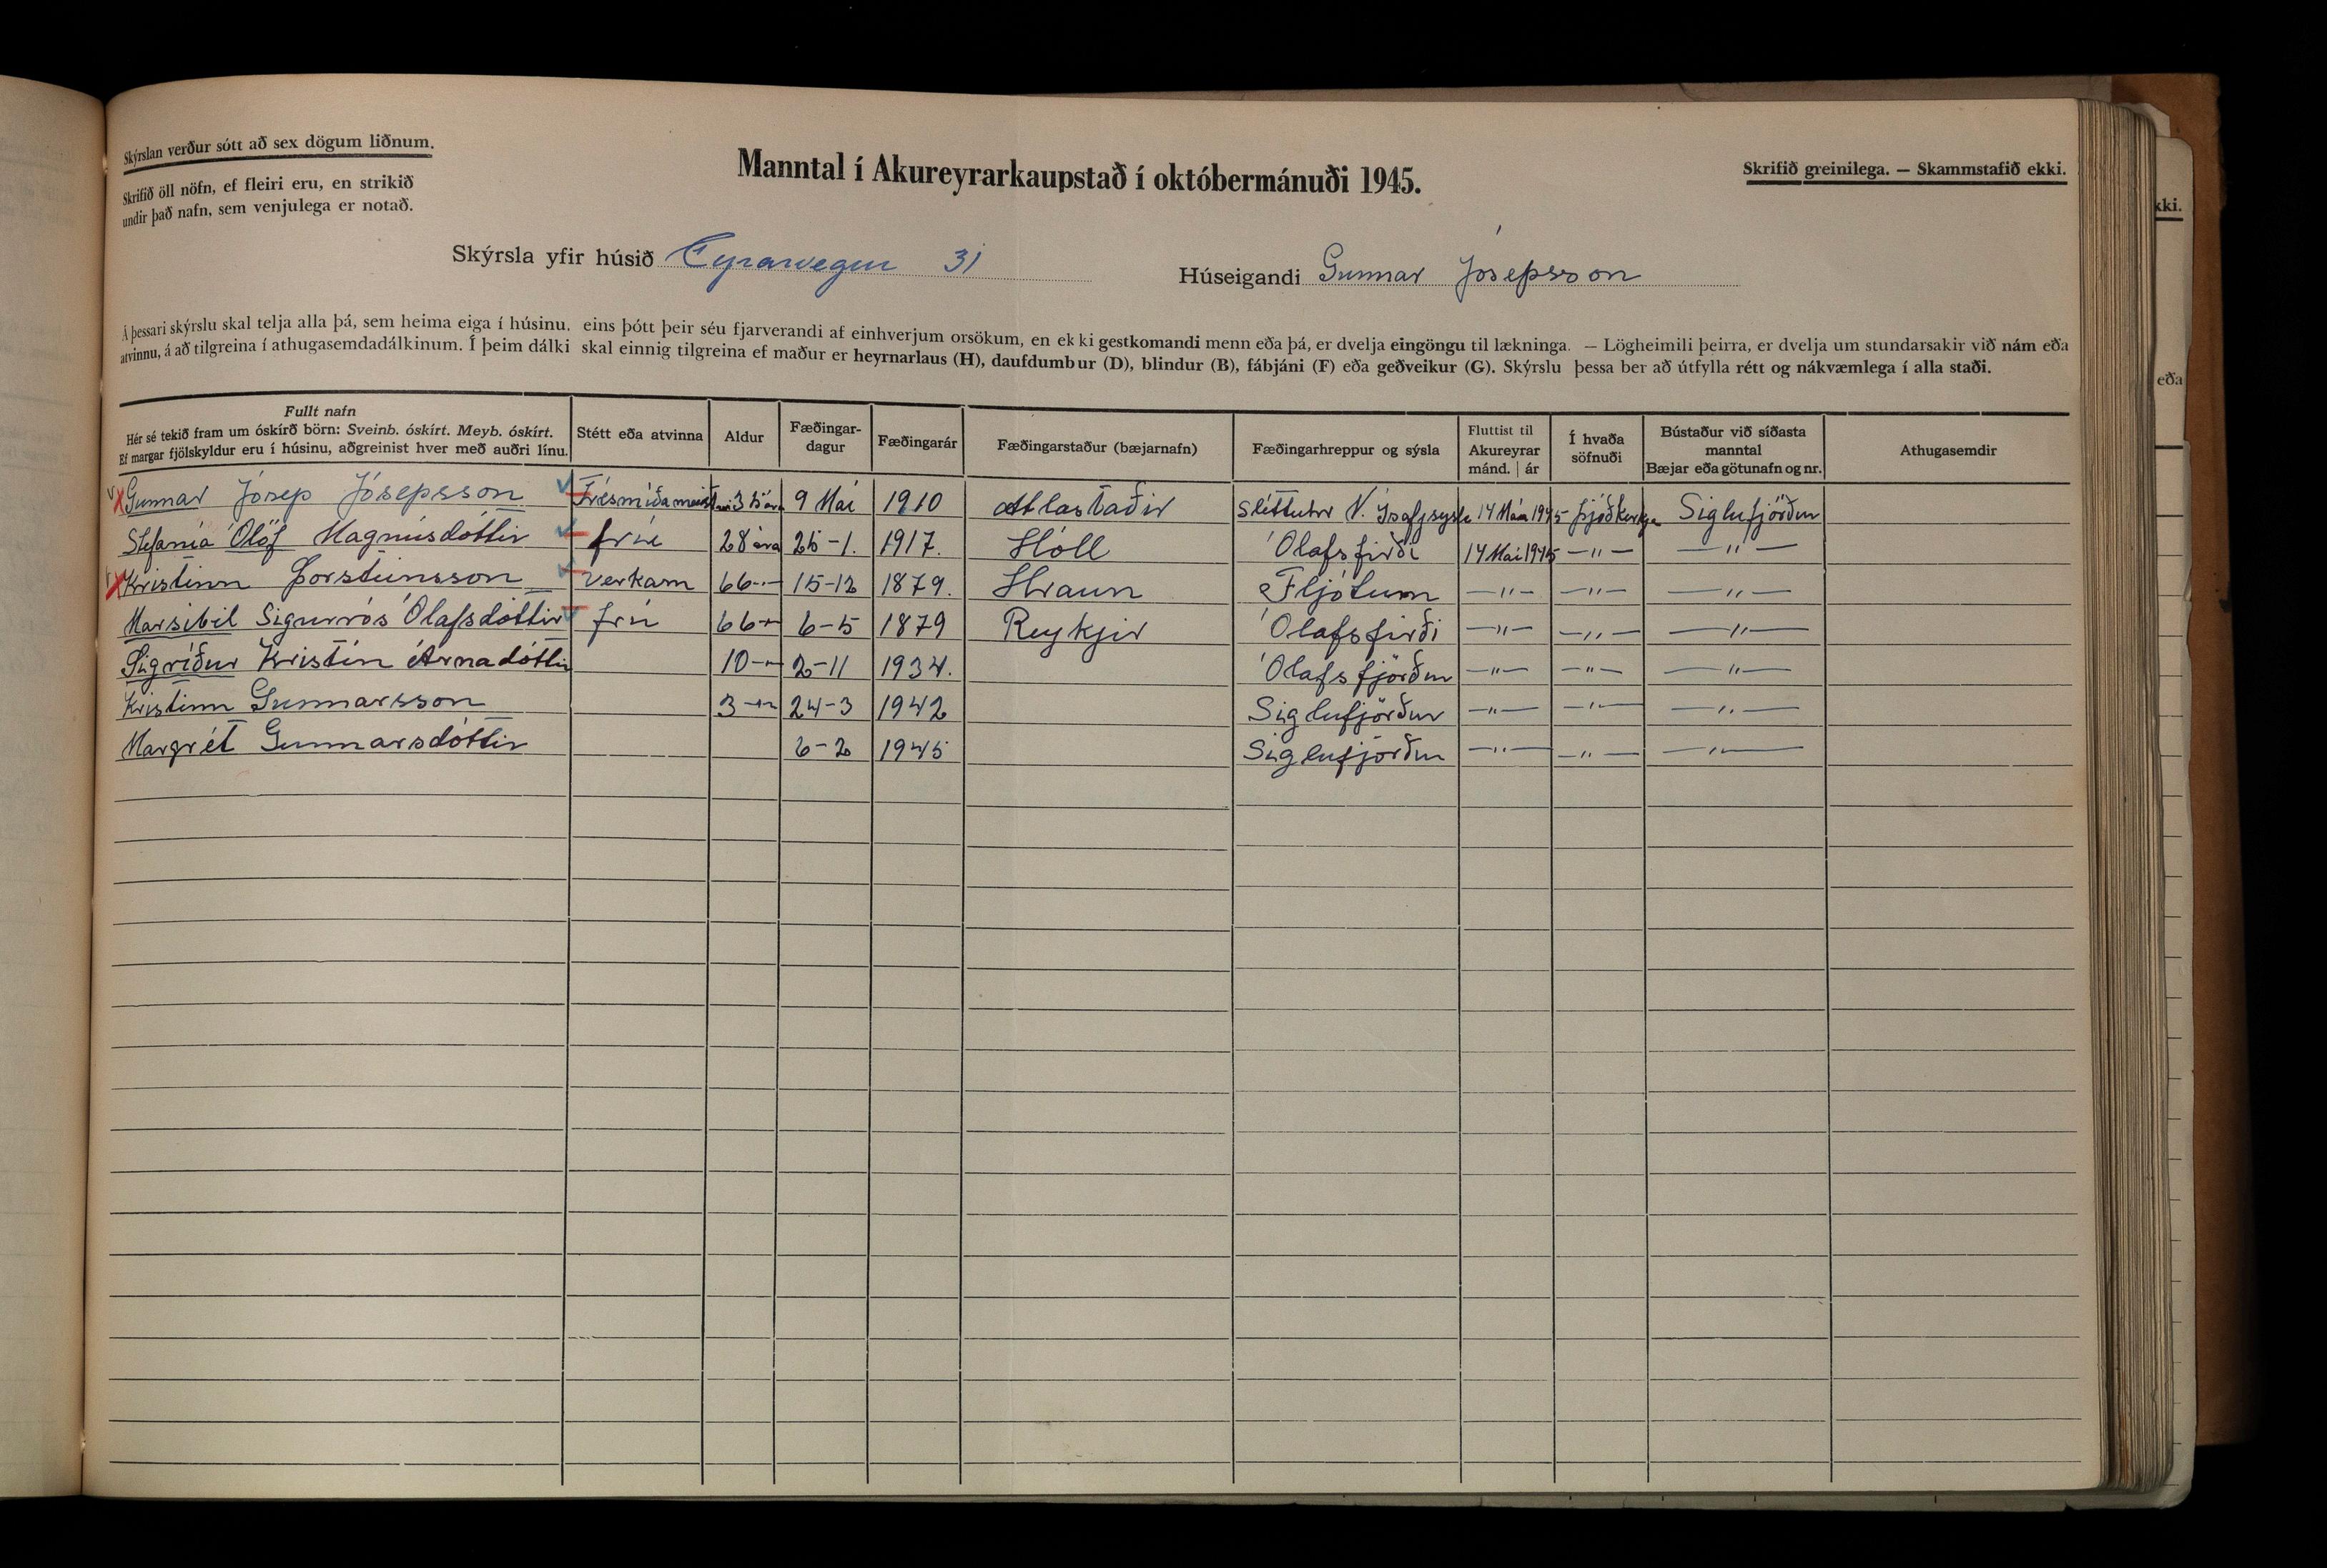 Skýrslan verður sótt að sex dögum liðnum.
Skrifið öll nöfn, ef fleiri eru, en strikið
undir það nafn, sem venjulega er notað.
Manntal í Akureyrarkaupstað í októbermánuði 1945.
Skrifið greinilega. — Skammstafið ekki.
Skýrsla yfir húsið Eyrarvegur 31
Húseigandi Gunnar Jósepsson
Á þessari skýrslu skal telja alla þá, sem heima eiga í húsinu, eins þótt þeir séu fjarverandi af einhverjum orsökum, en ekki gestkomandi menn eða þá, er dvelja eingöngu til lækninga. — Lögheimili þeirra, er dvelja um stundarsakir við nám eða
atvinnu, á að tilgreina í athugasemdadálkinum. Í þeim dálki skal einnig tilgreina ef maður er heyrnarlaus (H), daufdumbur (D), blindur (B), fábjáni (F) eða geðveikur (G). Skýrslu þessa ber að útfylla rétt og nákvæmlega í alla staði.
Fullt nafn
Hér sé tekið fram um óskírð börn: Sveinb. óskírt. Meyb. óskírt.
Ef margar fjölskyldur eru í húsinu, aðgreinist hver með auðri línu.
Stétt eða atvinna
Aldur
Fæðingar-
dagur
Fæðingarár
Fæðingarstaður (bæjarnafn)
Fæðingarhreppur og sýsla
Fluttist til
Akureyrar
mánd. | ár
Í hvaða
söfnuði
Bústaður við síðasta
manntal
Bæjar eða götunafn og nr.
Athugasemdir
Gunnar Jósep Jósepsson Trésmíðameistari 35 ára 9 Maí 1910 Atlastaðir Sléttuhr N. Ísafjsýsla 14 Maí 1945 þjóðkirkja Siglufjörður
Stefanía Ólöf Magnúsdóttir frú 28 ára 25-1. 1917. Hóll Ólafsfirði 14 Maí 1945 —"— —"—
Kristinn Þorsteinsson verkam 66 —"— 15-12 1879. Hraun Fljótum —"— —"— —"—
Marsibil Sigurrós Ólafsdóttir frú 66 —"— 6-5 1879 Reykjir Ólafsfirði —"— —"— —"—
Sigríður Kristín Árnadóttir 10 —"— 2-11 1934. Ólafsfjörður —"— —"— —"—
Kristinn Gunnarsson 3 —"— 24-3 1942 Siglufjörður —"— —"— —"—
Margrét Gunnarsdóttir 6-2 1945 Siglufjörður —"— —"— —"—
kki.
eða